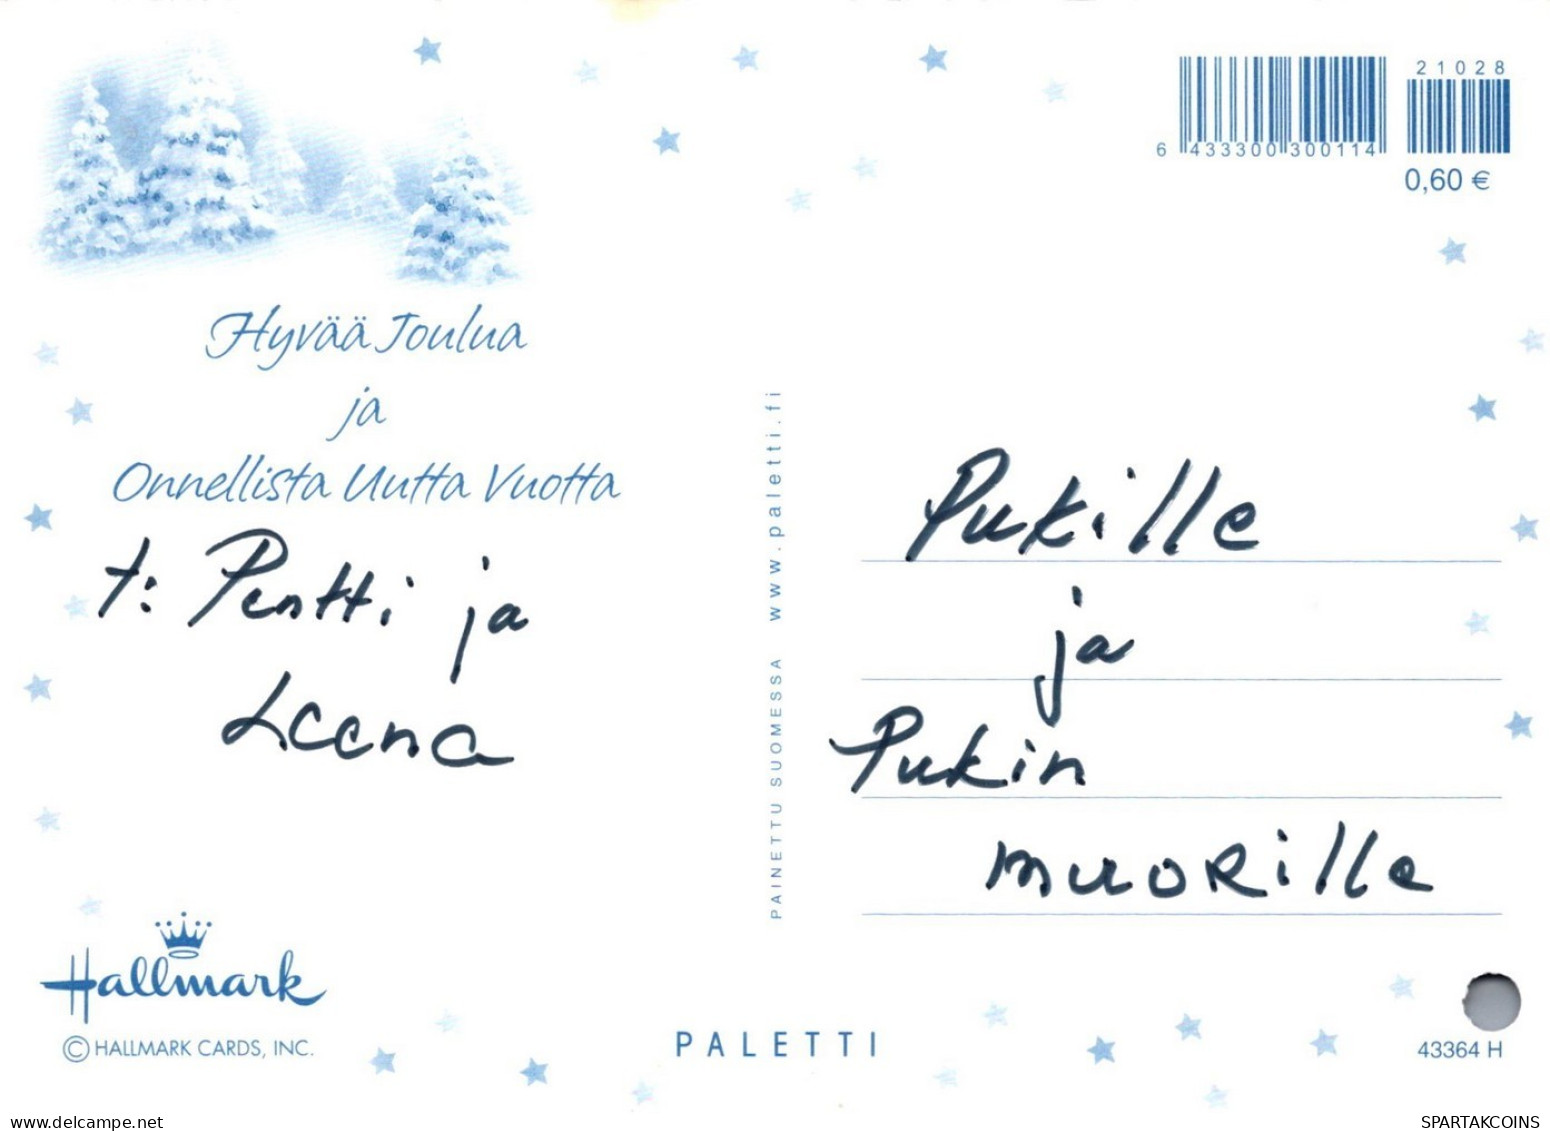 Hyvää Joulua
ja
Onnellista Uutta Vuotta
t: Pentti ja
Leena
Hallmark
© HALLMARK CARDS, INC.
PAINETTU SUOMESSA www.paletti.fi
PALETTI
6 433300 300114
21028
0,60 €
Pukille
ja
Pukin
muorille
43364 H
www.delcampe.net
SPARTAKCOINS